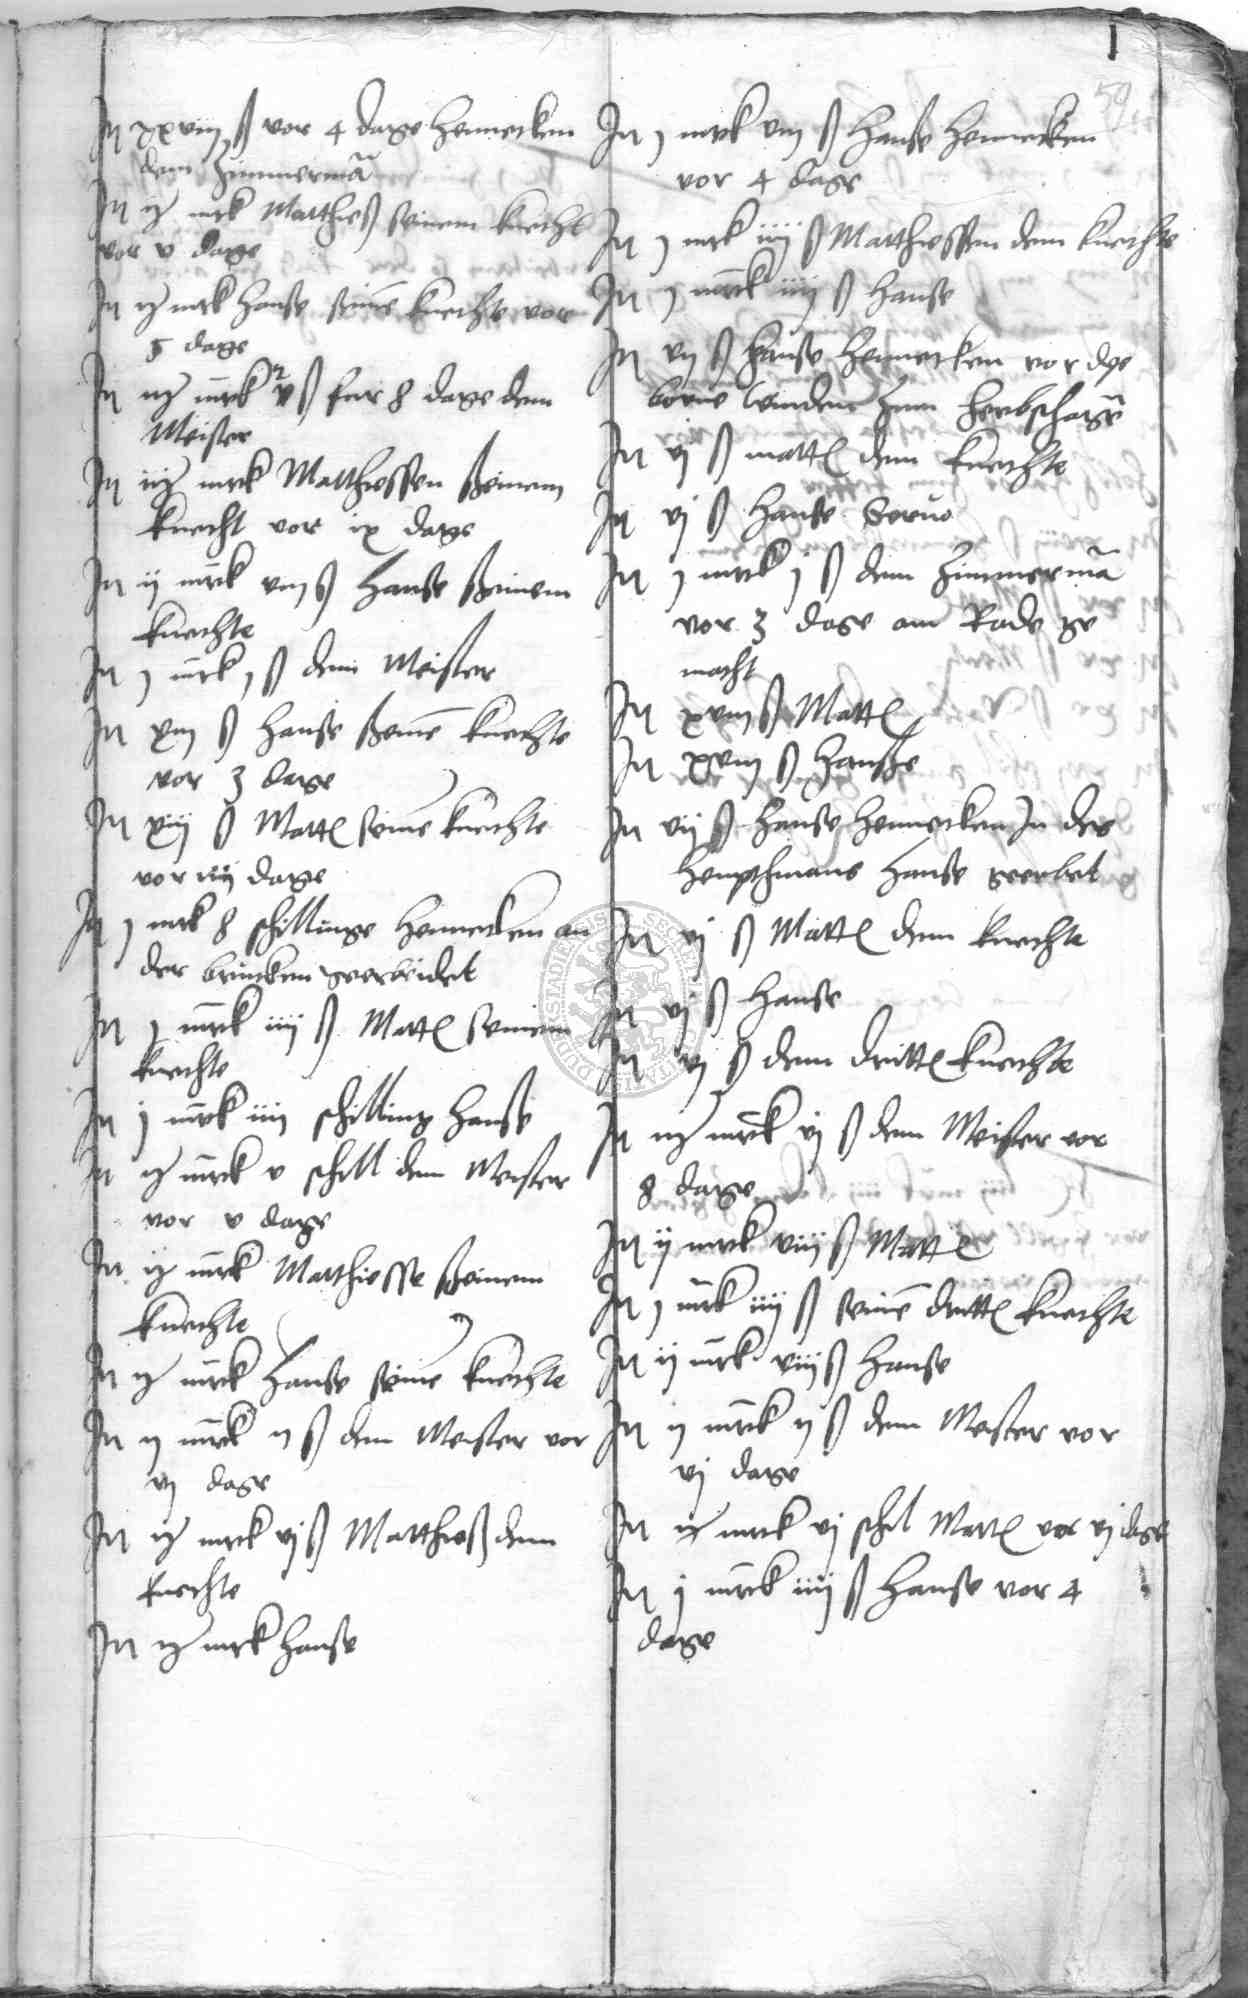 50
It xxviii ß vor 4 dage Hennecken
dem Zimmermā
It ii½ mrk Matthieß seinem knecht
vor v dage
It ii½ mrk Hanse seinē knechte vor
5 dage
It iii½ mrck ß fur 8 dage dem
Meister
It iii½ mrck Matthiessen ßeinem
knecht vor ix dage
It ii mrck viii ß Hanse ßeinem
knechte
It j mrck j ß dem Meister
It xiii ß Hanse ßeinē knechte
vor 3 dage
It xiiij ß Matt seinē knechte
vor iiij dage
It j mrk 8 schillinge Hennecken an
der brucken gearbeidet
It j mrck iiii ß Matt seinem
knechte
It j mrck iiii schilling Hanße
It ii½ mrck v schill dem Meister
vor v dage
It ii½ mrck Matthiesse ßeinem
knechte
It ii½ mrck Hanse seinē knechte
It ii mrck ii ß dem Meister vor
vi dage
It ii½ mrck vj ß Matthieß dem
knechte
It ii½ mrck Hanse
It j mrck viii ß Hanse Hennecken
vor 4 dage
It j mrck iiij ß Matthiessen dem knechte
It j mrck iiij ß Hanse
It vii ß Hanse Hennecken vor dye
borne zum
It vj ß matt dem knechte
It vj ß Hanse Servo
It j mrck j ß dem Zimmermā
vor 3 dage am Rade ge
macht
It xviii ß Matt
It xviii ß Hanße
It vij ß Hanse Hennecken In des
Heupthmans Hause gearbet
It vj ß Matt dem knechte
It vj ß Hanse
It vj ß dem dritt knechte
It iii½ mrck vj ß dem Meister vor
8 dage
It ij mrck viij ß Matt
It j mrck iiij ß seinē dritt knechte
It ij mrck viij ß Hanse
It ij mrck ij ß dem Meister vor
vj dage
It ii½ mrck vj schil Matt vor vj dage
It j mrck iiij ß Hanse vor 4
dage